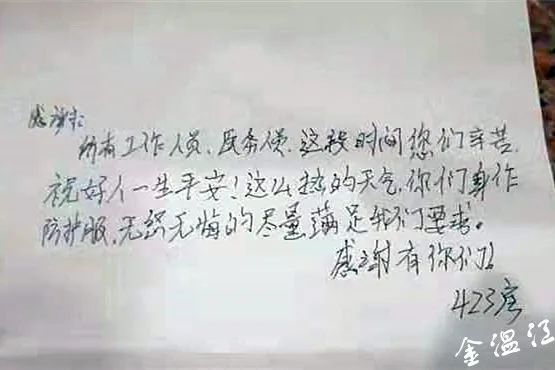 感谢:
所有工作人员、服务员、这段时间您们辛苦,
祝好人一生平安!这么热的天气,你们身作
防护服,无怨无悔的尽量满足我们要求。
感谢有你们!
423房
金温江